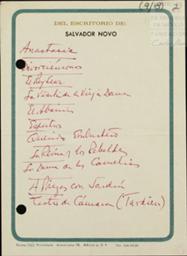 DEL ESCRITORIO DE:
SALVADOR NOVO
Anastasia
Divorciémonos
La Visita de la Vieja Dama
El Abanico
Espectros
Querido Embustero
La Reina y los Rebeldes
La Dama de las Camelias
A Pasos con Sardín
Teatro de Cámara (Tardieu)